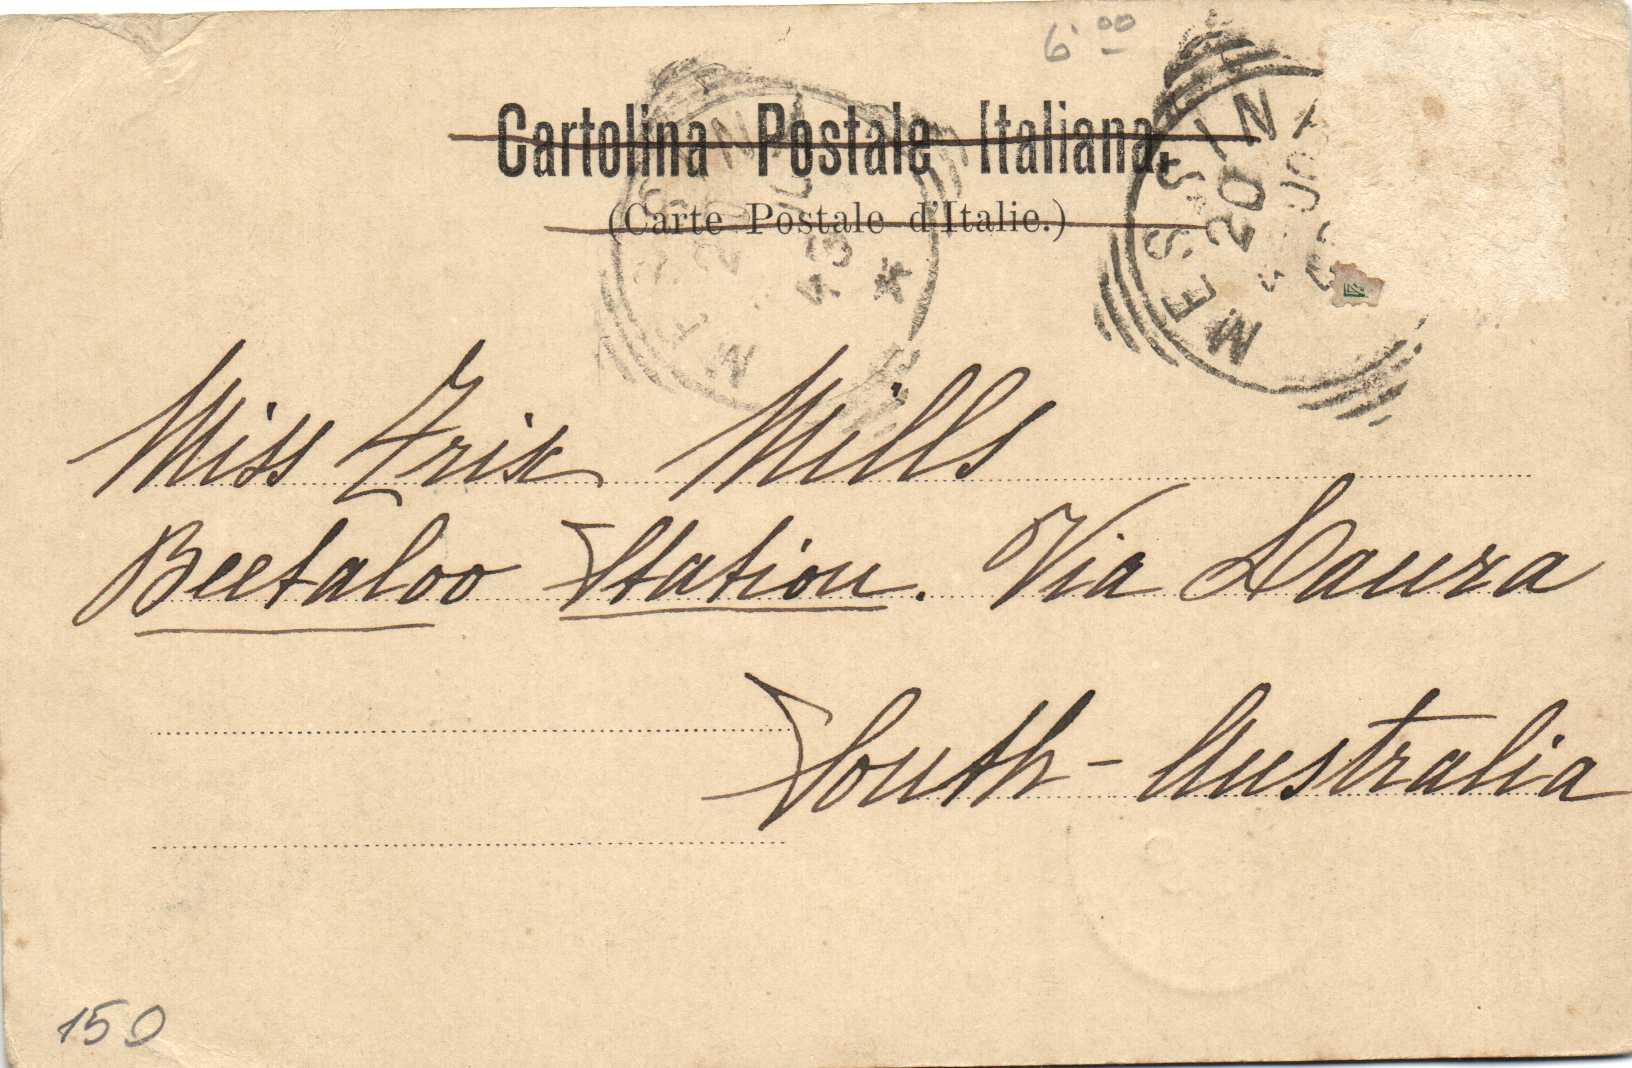 6.00
Cartolina Postale Italiana.
(Carte Postale d'Italie.)
MESSINA
20
MESSIN
20
43
Miss Trix Mills
Beetaloo Station. Via Laura
South - Australia
150